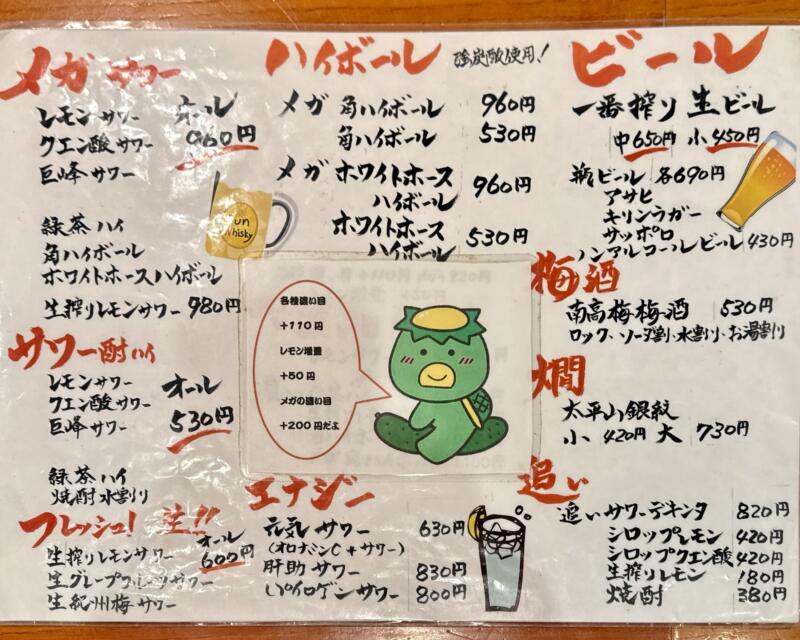 メガサワー
レモンサワー オール
クエン酸サワー 960円
巨峰サワー
緑茶ハイ
角ハイボール
ホワイトホースハイボール
生搾りレモンサワー 980円
サワー酎ハイ
レモンサワー オール
クエン酸サワー 530円
巨峰サワー
緑茶ハイ
焼酎水割り
フレッシュ! 生!!
オール
生搾りレモンサワー 600円
生グレープフルーツサワー
生紀州梅サワー
ハイボール 強炭酸使用!
メガ 角ハイボール 960円
角ハイボール 530円
メガ ホワイトホース
ハイボール 960円
ホワイトホース
ハイボール 530円
各種濃い目
+110円
レモン増量
+50円
メガの濃い目
+200円だよ
エナジー
元気サワー 630円
(オロナミンC+サワー)
肝助サワー 830円
パイロゲンサワー 800円
ビール
一番搾り生ビール
中650円 小450円
瓶ビール 各690円
アサヒ
キリンラガー
サッポロ
ノンアルコールビール 430円
梅酒
南高梅梅酒 530円
ロック、ソーダ割り、水割り、お湯割り
燗
太平山銀紋
小 420円 大 730円
追い
追いサワーデキンタ 820円
シロップレモン 420円
シロップクエン酸 420円
生搾りレモン 180円
焼酎 380円